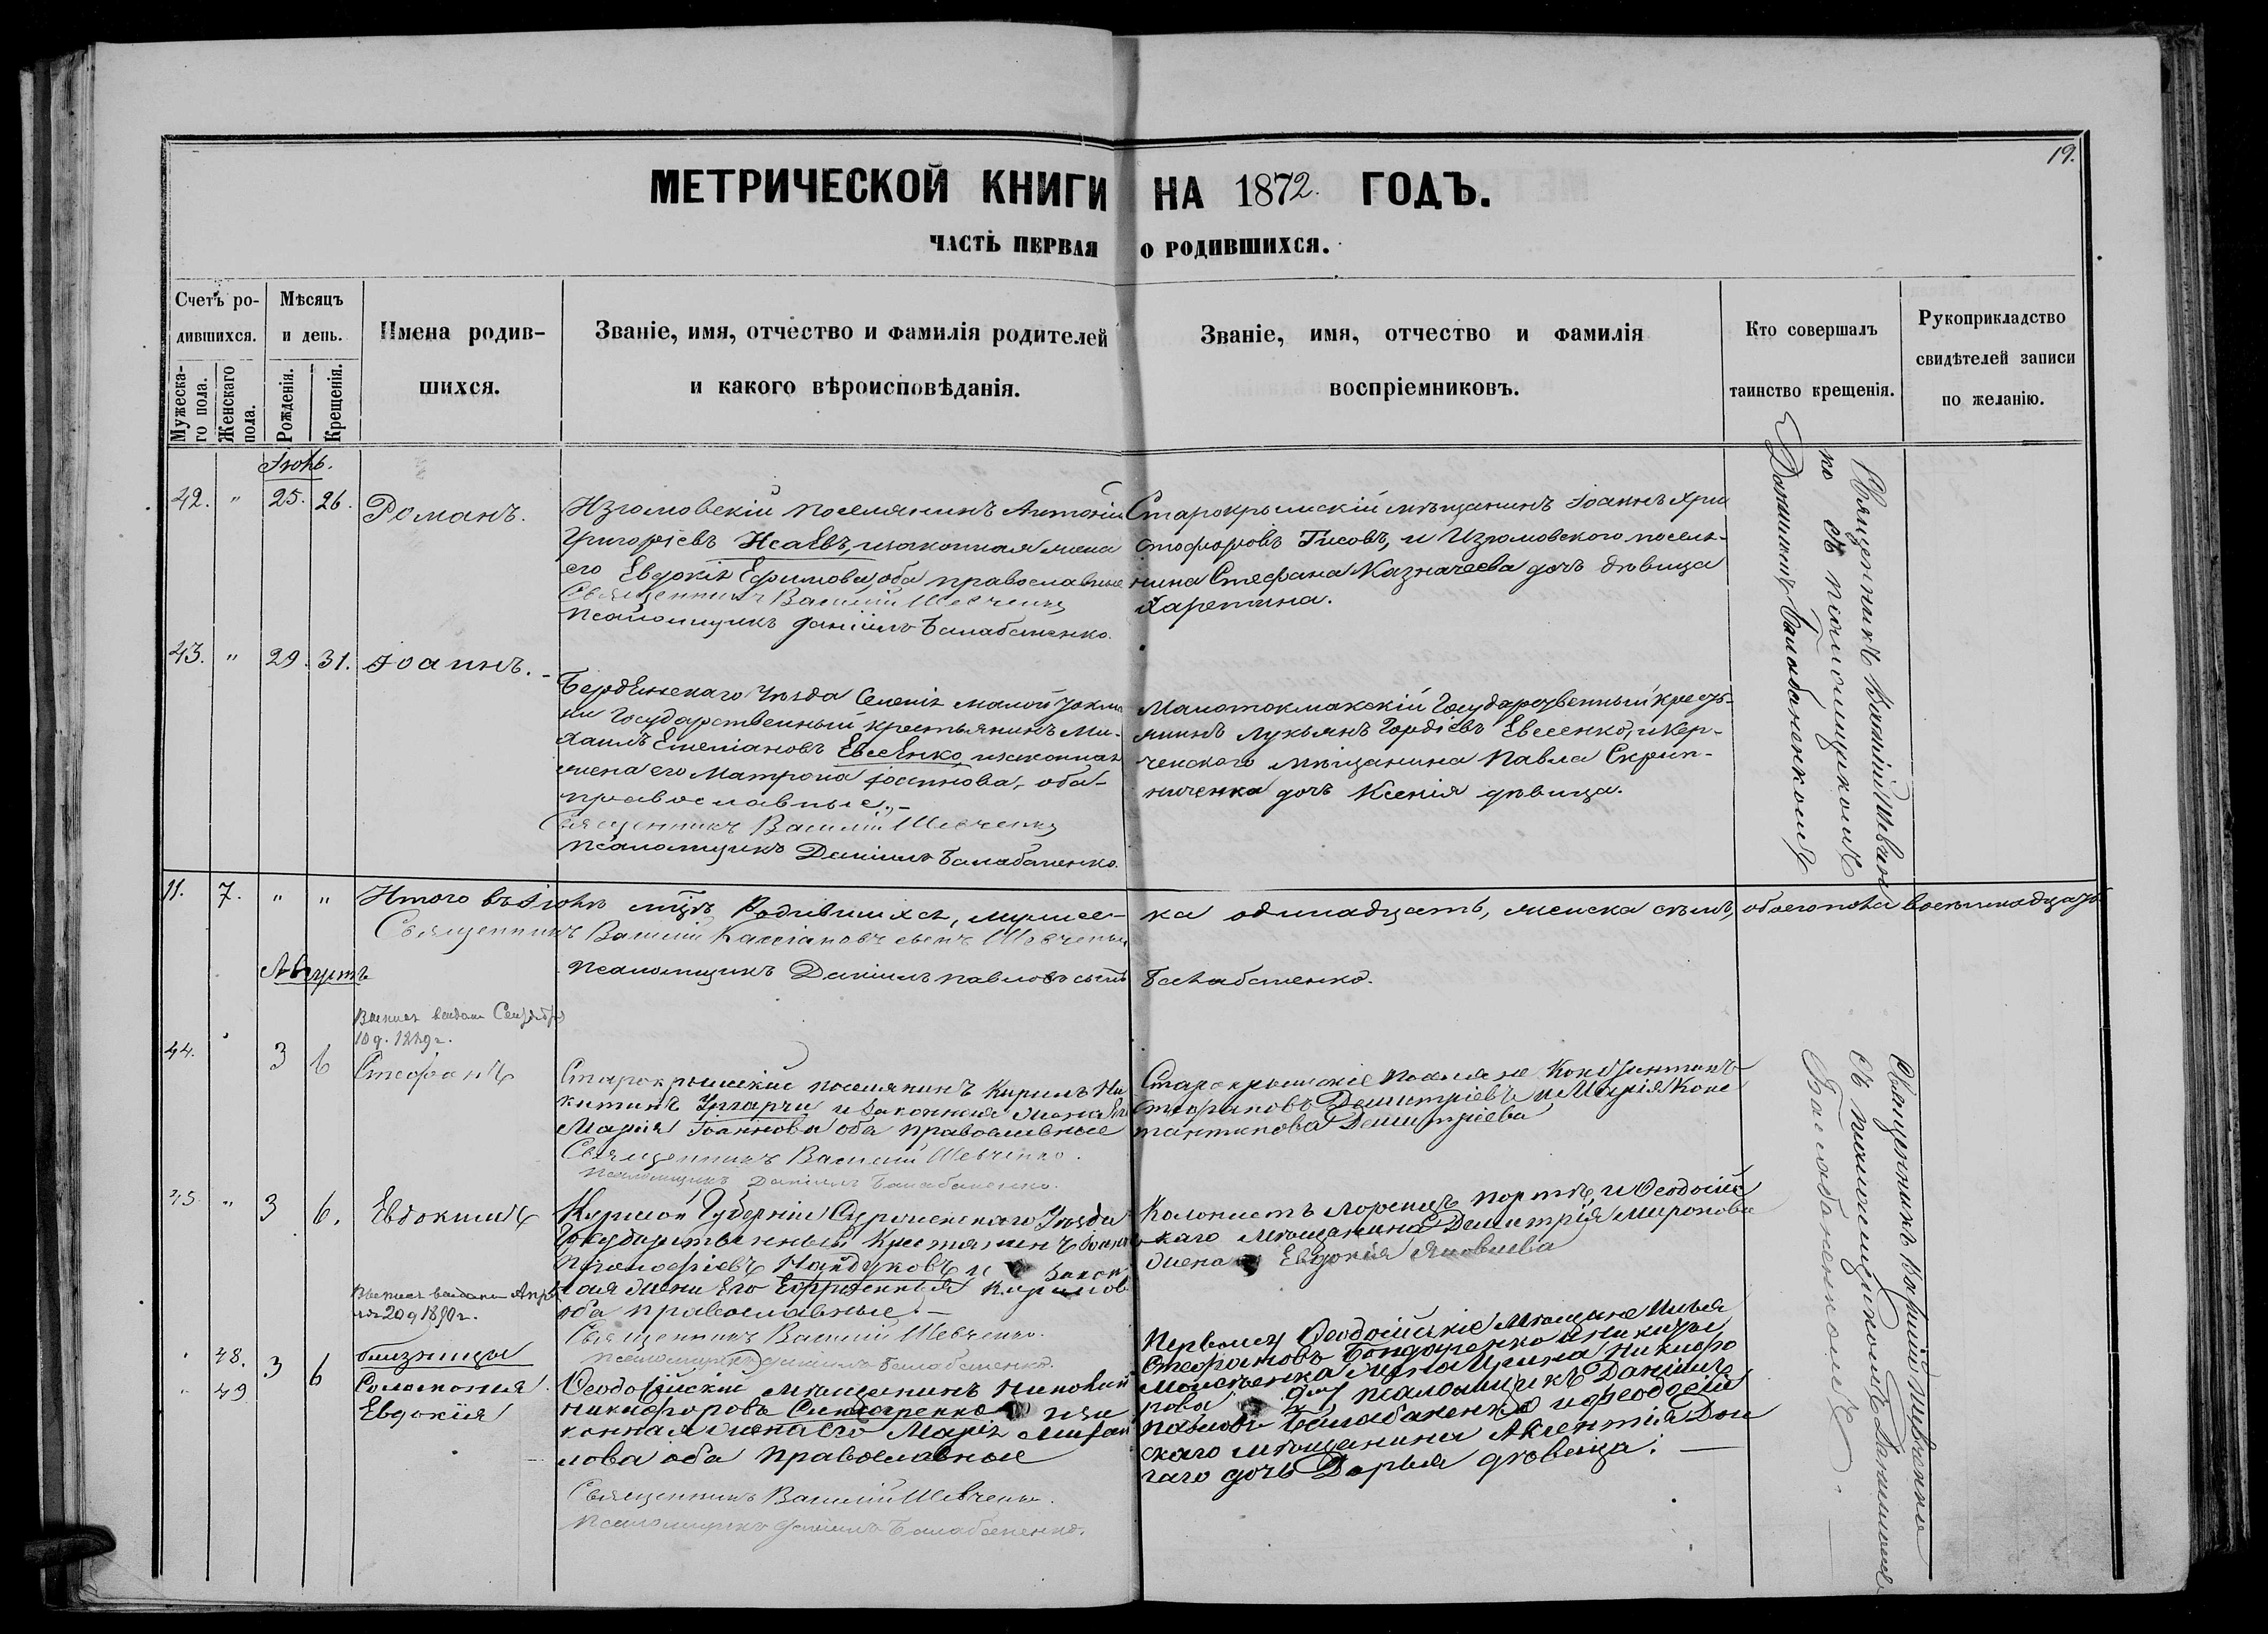 19.
МЕТРИЧЕСКОЙ КНИГИ НА 1872. ГОДЪ.
ЧАСТЬ ПЕРВАЯ О РОДИВШИХСЯ.
Счетъ ро-
дившихся.
Мужеска-
го пола.
Женскаго
пола.
Мѣсяцъ
и день.
Рожденія.
Крещенія.
Имена родив-
шихся.
Званіе, имя, отчество и фамилія родителей
и какого вѣроисповѣданія.
Званіе, имя, отчество и фамилія
воспріемниковъ.
Кто совершалъ
таинство крещенія.
Рукоприкладство
свидѣтелей записи
по желанію.
Іюль.
42. " 25. 26. Романъ.
Изюмовскій поселянинъ Антоній
Григоріевъ Исаевъ, и законная жена
его Евдокія Ефимова, оба православные
Священникъ Василій Шевченко
Псаломщикъ Даніилъ Балабаненко.
Старокрымскій мѣщанинъ Іоаннъ Хри
стофоровъ Гисовъ, и Изюмовского поселя-
нина Стефана Казначеева дочь дѣвица
Харетина.
Священникъ Василій Шевчен
ко съ псаломщикомъ
Данииломъ Балабаненкомъ
43. " 29. 31. Іоаннъ.
Бердянскаго Уѣзда Селенія малой Токма
ки Государственный крестьянинъ Ми-
хаилъ Емеліановъ Евсенко и законная
жена его Матрона Іосифова, оба
православные.
Священникъ Василій Шевченко
Псаломщикъ Даніилъ Балабаненко.
Малотокмакскій Государственный кресть-
янинъ Лукьянъ Гордіевъ Евсенко, и Кер-
ченского мѣщанина Павла Скрип-
ниченка дочь Ксенія дѣвица.
11. 7. " " Итого въ Іюлѣ мцѣ Родившихся, мужес-
ка одинадцать, женска семь, обоего пола восемнадцать
Священникъ Василій Кассіановъ сынъ Шевченко
Псаломщикъ Даніилъ Павловъ сынъ Балабаненко.
Августъ
44. 3 6 Стефанъ
Старокрымскій поселянинъ Кирилъ Ни
китинъ и законная жена Его
Марія Іоаннова оба православные
Священникъ Василій Шевченко.
Псаломщикъ Даніилъ Балабаненко.
Старокрымскіе Поселяне Константинъ
Стефановъ Димитріевъ и Марія Конс
тантинова Димитріева
Священникъ Василій Шевченко
съ псаломщикомъ Данииломъ
Балабаненкомъ.
45. " 3 6. Евдокимъ
Курской Губерніи Уѣзда
Государственный Крестянинъ
Найдуковъ и закон
ная жена Его
оба православные
Священникъ Василій Шевченко.
Псаломщикъ Даніилъ Балабаненко.
Колонистъ и Ѳеодосій
скаго мѣщанина Димитрія Миронова
жена Евдокія Яковлева
48.
49
3 6
близницы
Соломонія
Евдокія
Ѳеодосійскій мѣщанинъ
Никифоровъ и за
конная жена его Марія Михаи
лова оба православные
Священникъ Василій Шевченко.
Псаломщикъ Даніилъ Балабаненко.
Первому Ѳеодосійскіе мѣщане Илья
Стефановъ Бондаренко и Никиты
жена Ирина Никифо
рова 2му псаломщикъ Даніилъ
Павловъ Балабаненко и Ѳеодосій
скаго мѣщанина
дочь Дарья дѣвица.